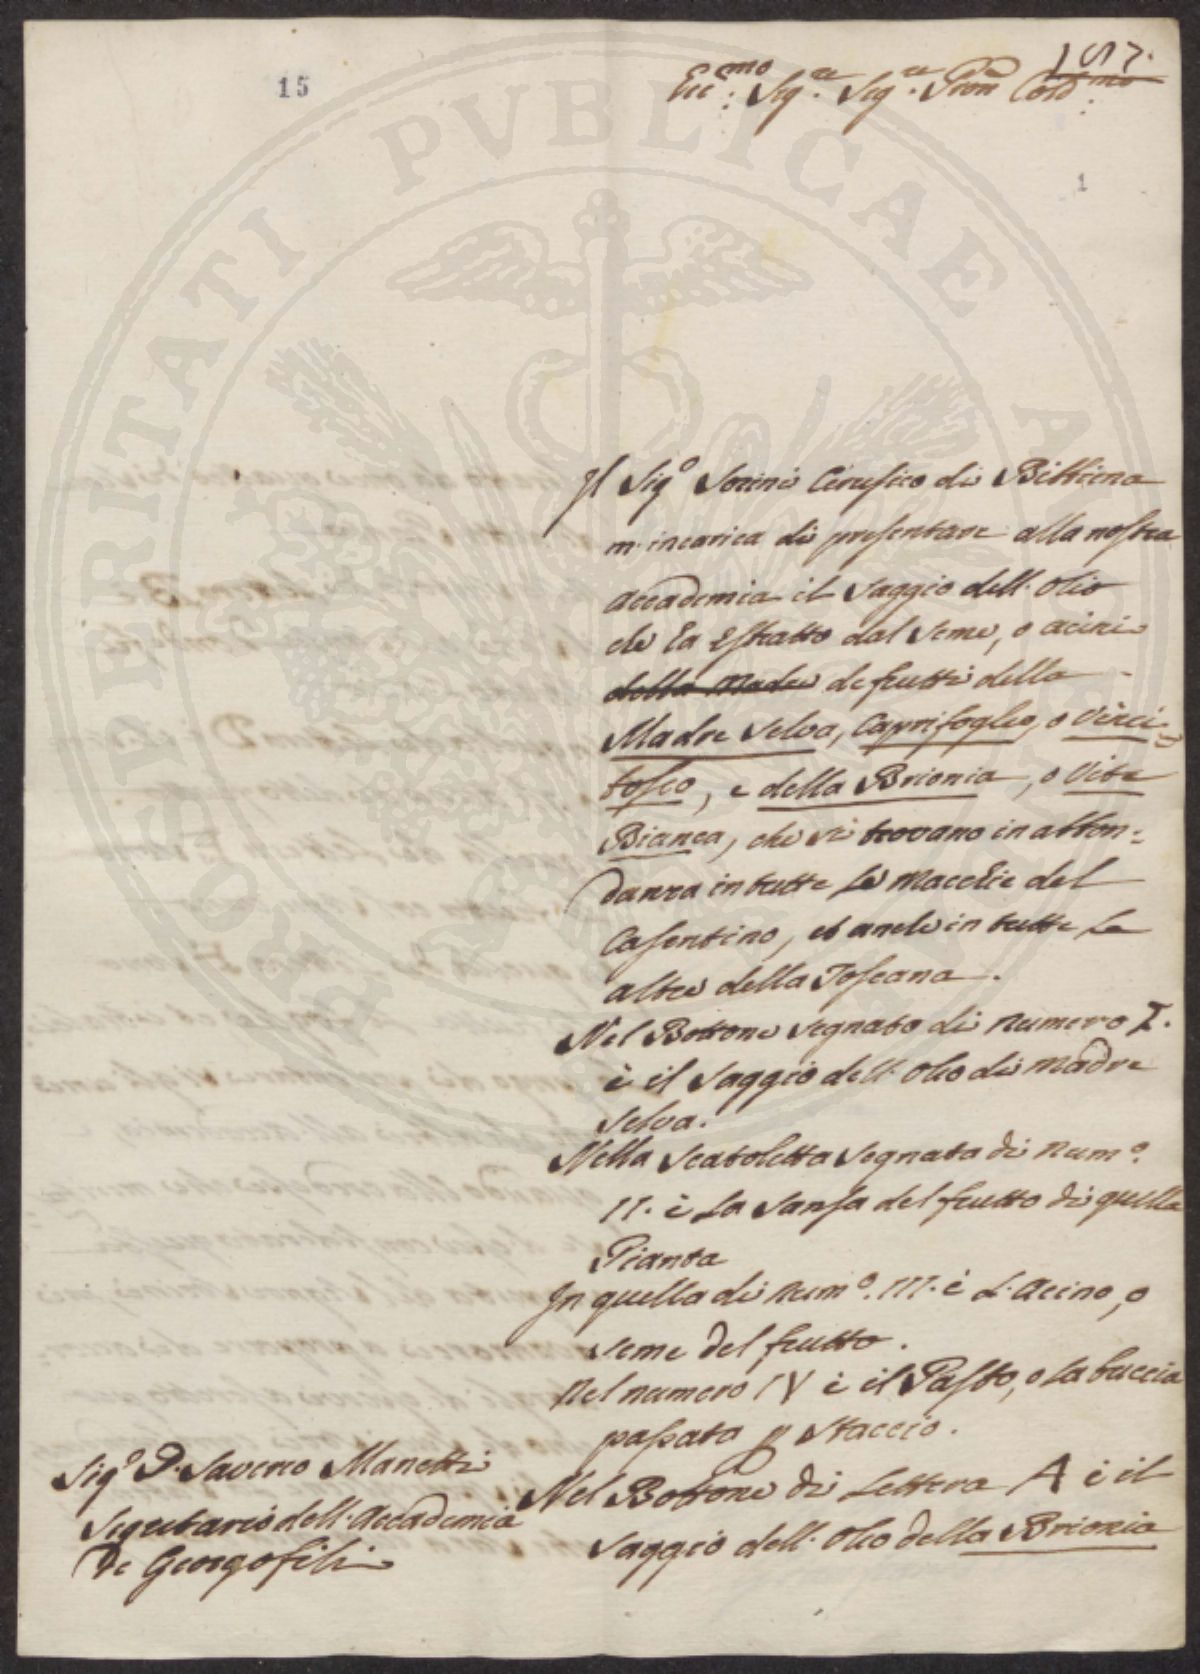 15
197.
Ecc:mo Sig.re Sig.re Pron Col:mo
1
Il Sig.o Sorini Cirusico di Bibbiena
m'incarica di presentare alla nostra
Accademia il saggio dell'Olio
che ha estratto dal seme, o acini
della Madre de frutti della
Madre Selva, Caprifoglio, o Vinci=
tosco, e della Brionia, o Vite
Bianca, che si trovano in abbon=
danza in tutte le macchie del
Casentino, et anche in tutte le
altre della Toscana.
Nel Bottone segnato di numero I.
è il saggio dell'Olio di Madre
Selva.
Nella Scatoletta segnata di num.o
II. è la sansa del frutto di quella
Pianta
In quella di num.o III. è l'acino, o
seme del frutto.
Nel numero IV è il Pasto, o la buccia
passata p staccio.
Nel Bottone di Lettera A è il
saggio dell'Olio della Brionia
Sig.o D. Saverio Manetti
Segretario dell'Accademia
De Georgofili
PROSPERITATI PVBLICAE AV